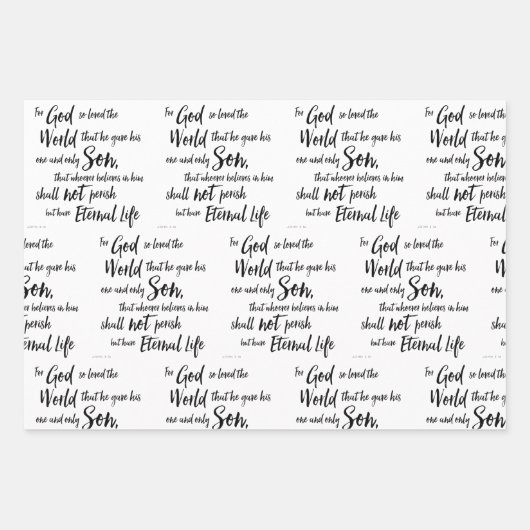 For God so loved the
World that he gave his
one and only Son,
that whoever believes in him
shall not perish
but have Eternal Life
For God so loved the
World that he gave his
one and only Son,
that whoever believes in him
shall not perish
but have Eternal Life
For God so loved the
World that he gave his
one and only Son,
that whoever believes in him
shall not perish
but have Eternal Life
For God
World
one and only
shall not
but have
so loved the
that he gave his
Son,
believes in him
perish
Life
For God so loved the
World that he gave his
one and only Son,
that whoever believes in him
shall not perish
but have Eternal Life
For God so loved the
World that he gave his
one and only Son,
that whoever believes in him
shall not perish
but have Eternal Life
For God so loved the
World that he gave his
one and only Son,
that whoever believes in him
shall not perish
but have Eternal Life
For God so loved the
World that he gave his
one and only Son,
For God so loved the
World that he gave his
one and only Son,
For God so loved the
World that he gave his
one and only Son,
For God
World
one and only